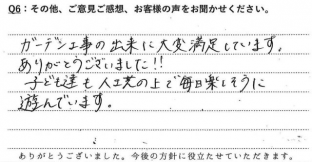 Q6：その他、ご意見ご感想、お客様の声をお聞かせください。
ガーデン工事の出来に大変満足しています。
ありがとうございました!!
子ども達も人工芝の上で毎日楽しそうに
遊んでいます。
ありがとうございました。今後の方針に役立たせていただきます。